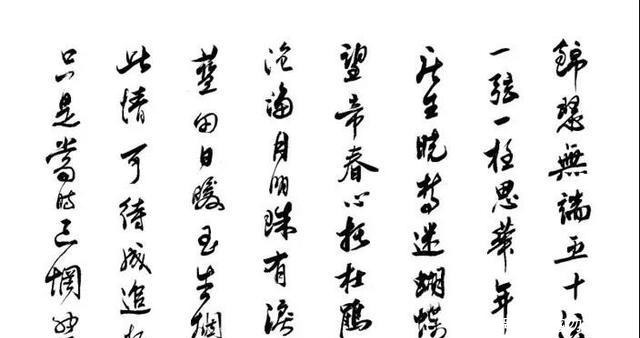 錦瑟無端五十弦
一弦一柱思華年
庄生晓梦迷蝴蝶
望帝春心托杜鵑
滄海月明珠有淚
藍田日暖玉生烟
此情可待成追
只是當时已惘然